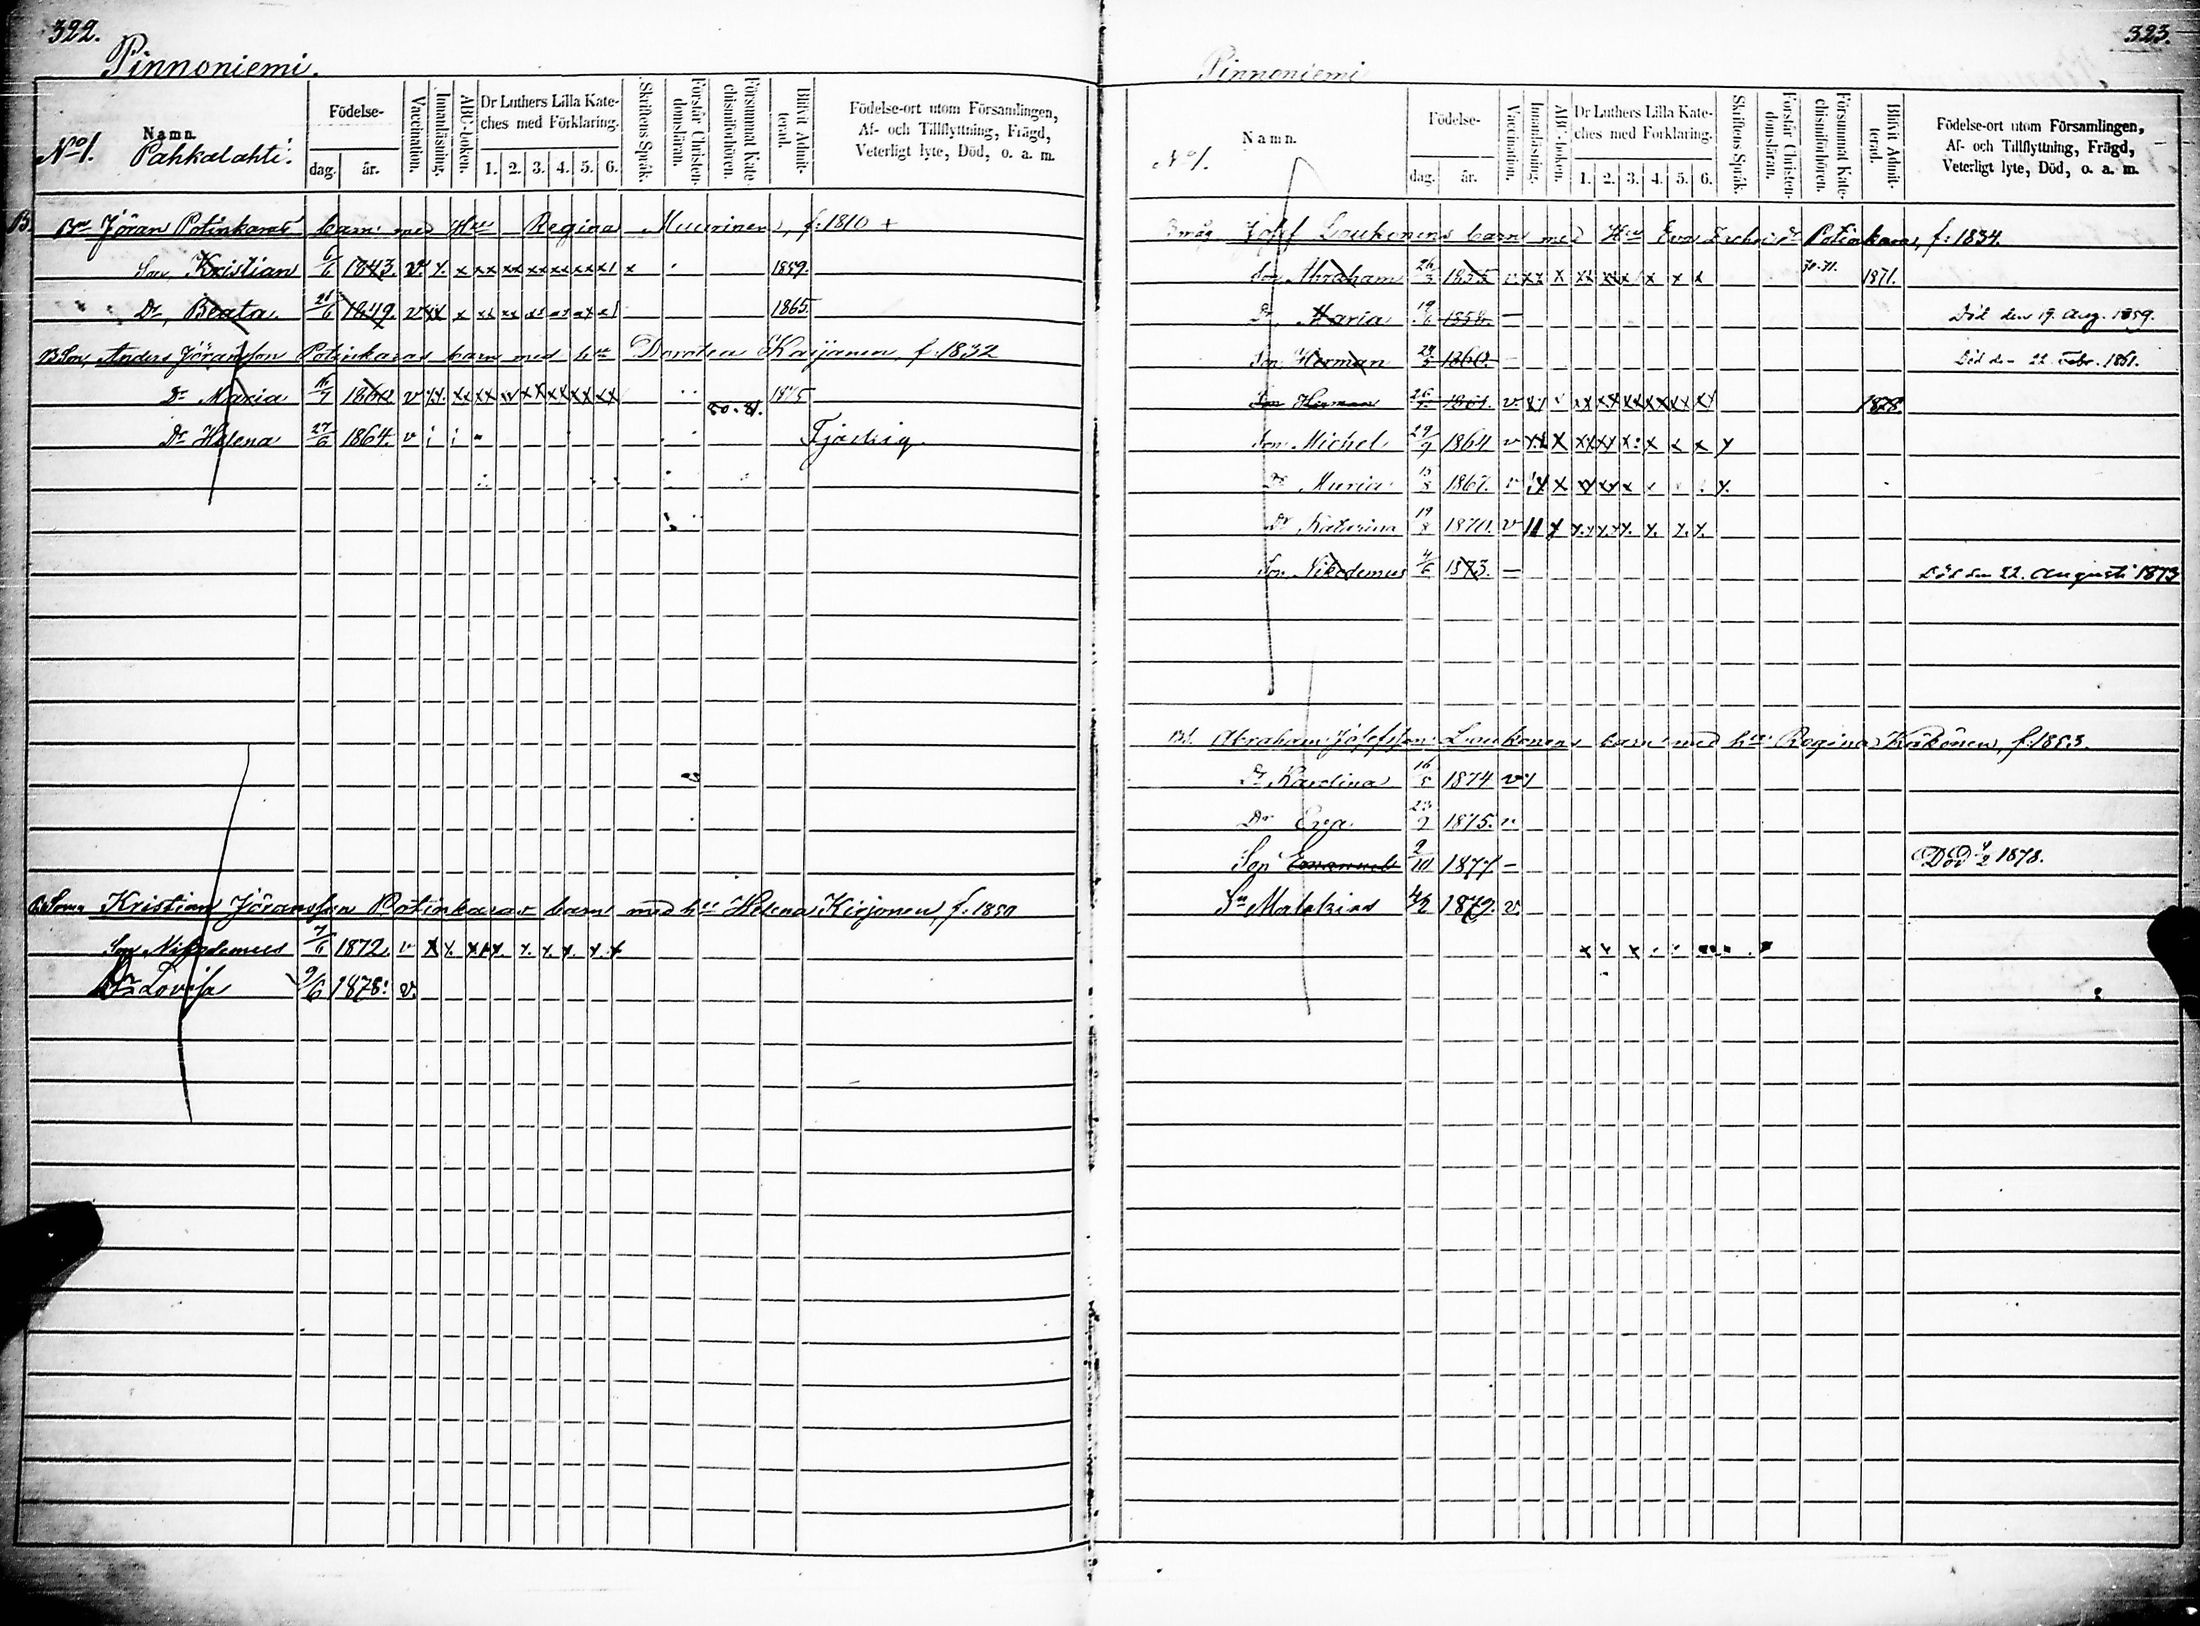 322.
Pinnoniemi.
No 1. Namn. Pahkalahti.
Födelse- dag. år.
Vaccination.
Innanläsning.
ABC-boken.
Dr Luthers Lilla Kate-
ches med Förklaring.
1. 2. 3. 4. 5. 6.
Skriftens Språk.
Förstår Christen-
domsläran.
Försummat Kate-
chismiförhören.
Blifvit Admit-
terad.
Födelse-ort utom Församlingen,
Af- och Tillflyttning, Frägd,
Veterligt lyte, Död, o. a. m.
B. Br Jöran Potinkaras barn med Hu Regina Muurinen, f. 1810 +
Son, Kristian 6/6 1843. v. x. x xx xx xx xx xx x 1859.
Dr, Beata 21/6 1849. v xx x xx xx xx xx xx 1865.
B Son, Anders Jöransson Potinkaras barn med hu Dorotea Karjanen, f. 1832
Dr Maria 16/7 1860 v xx. xx xx xx xx xx xx xx 1875
Dr Helena 27/6 1864. v 80-81. Fjärdig
B. Son Kristian Jöransson Potinkaras barn med hu Helena Kirjonen, f. 1850
Son Nikodemus 7/6 1872. v x x. xxx. x. x. x. x x
Dr Lovisa 9/6 1878. v.
323.
Pinnoniemi
No 1. Namn.
Födelse- dag. år.
Vaccination.
Innanläsning.
ABC-boken.
Dr Luthers Lilla Kate-
ches med Förklaring.
1. 2. 3. 4. 5. 6.
Skriftens Språk.
Förstår Christen-
domsläran.
Försummat Kate-
chismiförhören.
Blifvit Admit-
terad.
Födelse-ort utom Församlingen,
Af- och Tillflyttning, Frägd,
Veterligt lyte, Död, o. a. m.
Bmåg Josef Loukonens barn med Hu Eva Dr Potinkara, f. 1834.
Son Abraham 26/3 1855 v. xx x xx xx x x x x 70-71. 1871.
Dr, Maria 19/6 1858. — Död den 19. Aug. 1859.
Son Herman 28/5 1860. — Död den 22. Febr. 1861.
Son Herman 1861. v xx xx xx xx xx xx xx 1878
Son Michel 29/9 1864 v xx x xx xx x x x x x
Dr Maria 1867. v x x xx xx x x.
Dr Katarina 19/8 1870. v 11 x x. xx. x. x. x. x.
Son Nikodemus 4/6 1873. — Död den 22. Augusti 1873
Bd. Abraham Josefsson Loukonens barn med hu Regina Käkönen, f. 1853.
Dr Karolina 16/5 1874 v
Dr Eva 1875. v
Son Emanuel 2/10 1877 — Död 4/2 1878.
Sn Malakias 4/2 1879. v.